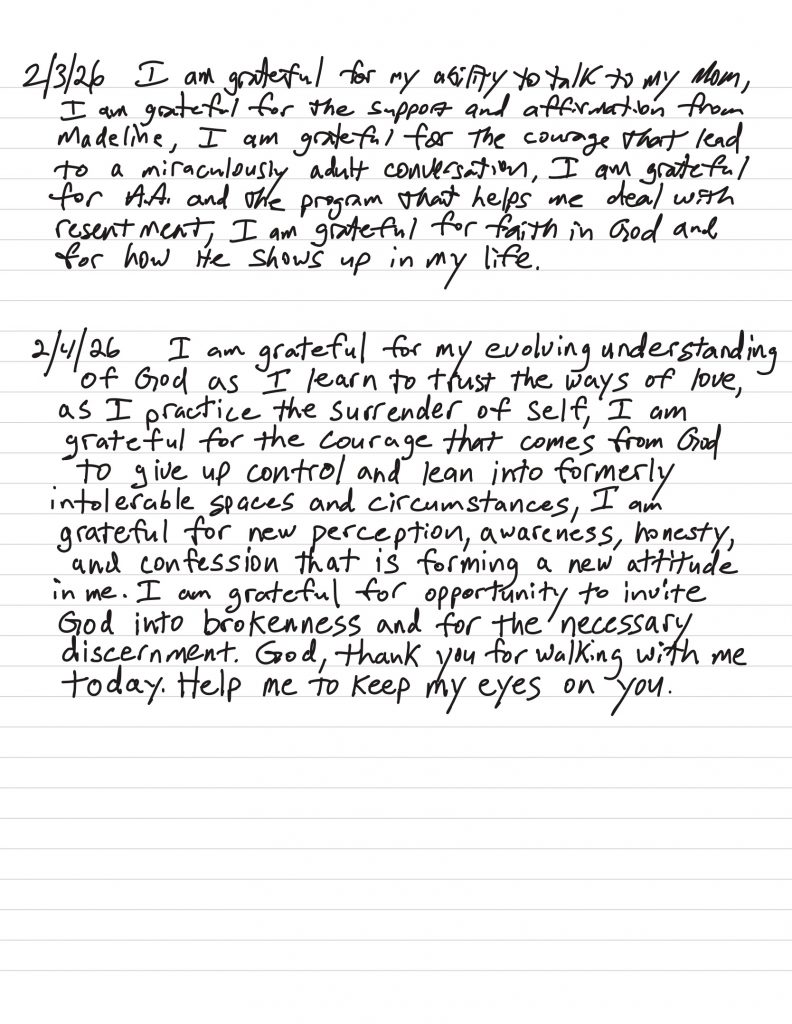 2/3/26 I am grateful for my ability to talk to my Mom,
I am grateful for the support and affirmation from
Madeline, I am grateful for the courage that lead
to a miraculously adult conversation, I am grateful
for A.A. and the program that helps me deal with
resentment, I am grateful for faith in God and
for how He shows up in my life.
2/4/26 I am grateful for my evolving understanding
of God as I learn to trust the ways of love,
as I practice the surrender of self, I am
grateful for the courage that comes from God
to give up control and lean into formerly
intolerable spaces and circumstances, I am
grateful for new perception, awareness, honesty,
and confession that is forming a new attitude
in me. I am grateful for opportunity to invite
God into brokenness and for the necessary
discernment. God, thank you for walking with me
today. Help me to keep my eyes on you.